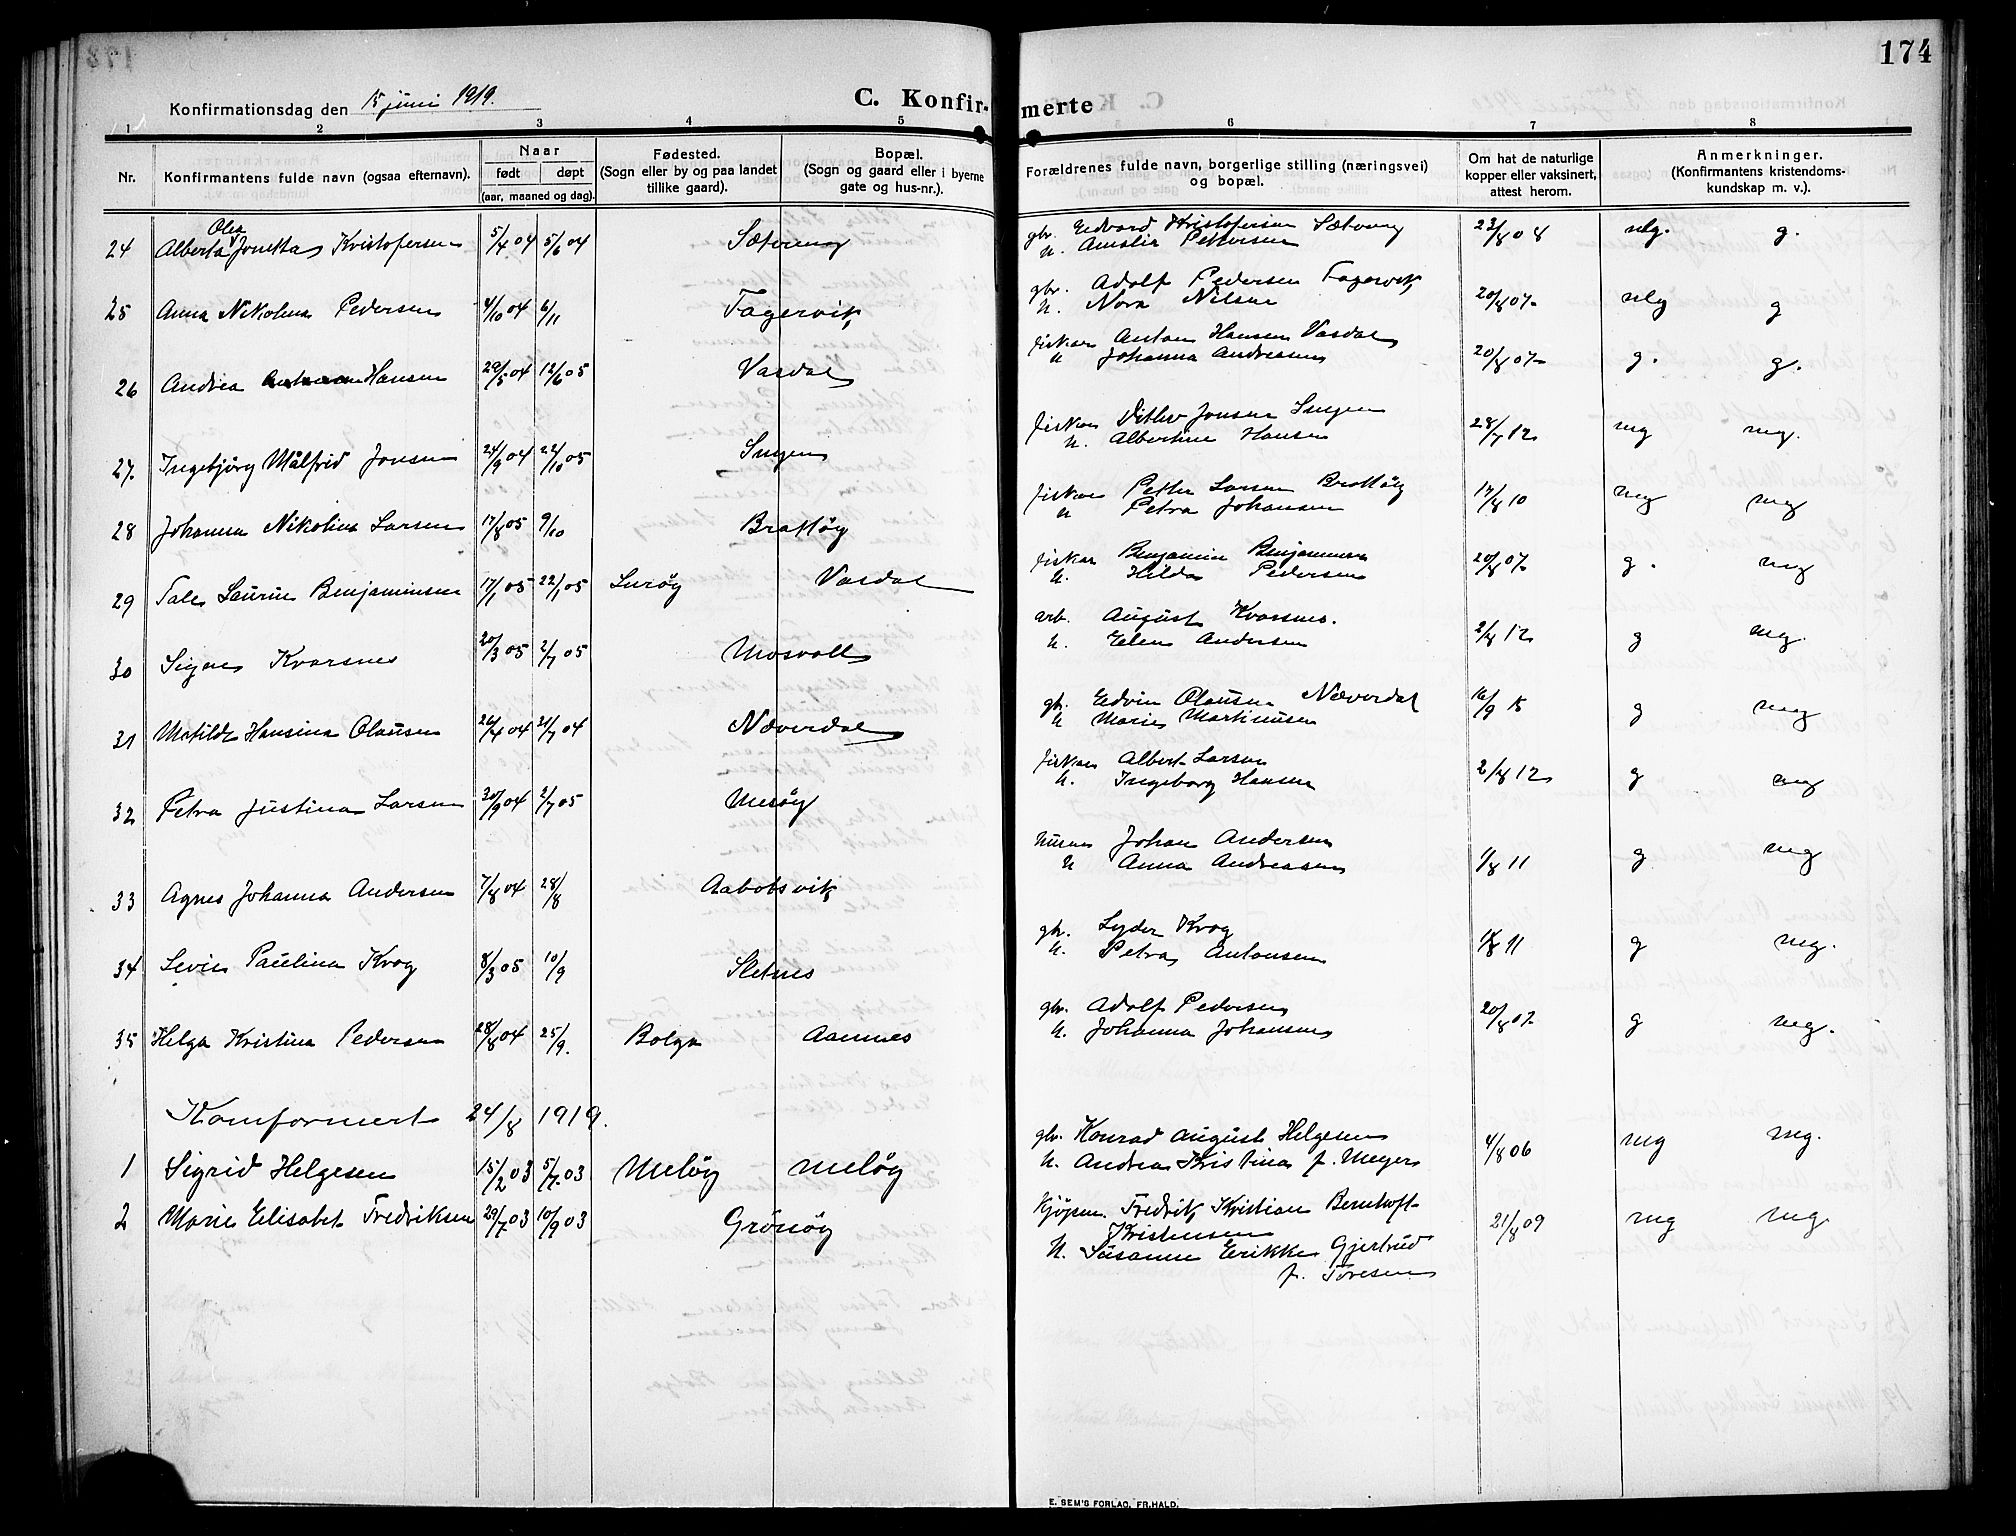 174
Konfirmationsdag den 15 juni 1919.
C. Konfir-merte
1 2 3 4 5 6 7 8
Nr. Konfirmantens fulde navn (ogsaa efternavn). Naar født døpt (aar, maaned og dag). Fødested. (Sogn eller by og paa landet tillike gaard). Bopæl. (Sogn og gaard eller i byerne gate og hus-nr.). Forældrenes fulde navn, borgerlige stilling (næringsvei) og bopæl. Om hat de naturlige kopper eller vaksinert, attest herom. Anmerkninger. (Konfirmantens kristendoms-kundskap m. v.).
Olea
24 Alberta Jonetta Kristofersen 5/4 04 5/6 04 Sætvung gbr. Edvard Kristofersen Sætvung 23/8 08 nlg. g.
h. Amalie Pettersen
25 Anna Nikolina Pedersen 4/10 04 6/11 Fagervik gbr. Adolf Pedersen Fagervik 20/8 07 nlg g
h. Nora Nilsen
26 Andrea Hansen 29/5 04 12/6 05 Vasdal fisker Anton Hansen Vasdal 20/8 07 g. g.
h Johanna Andreasen
27. Ingebjørg Målfrid Jonsen 24/9 04 22/10 05 Sugen fisker Ditlev Jonsen Sugen 28/7 12 mg mg.
h. Albertine Hansen
28 Johanna Nikolina Larsen 17/8 05 9/10 Brattøy fisker Petter Larsen Brattöy 17/8 10 mg mg
h Petra Johansen
29 Tale Laurine Benjaminsen 17/1 05 22/1 05 Lurøy Vasdal fisker Benjamin Benjaminsen 20/8 07 g. mg
h. Hilda Pedersen
30 Signe Kvarsnes 20/3 05 2/7 05 Mosvoll arb. August Kvarsnes. 2/8 12 g mg.
h. Elen Andersen
31 Matilde Hansina Olausen 26/4 04 21/7 04 Næverdal gbr. Edvin Olausen Næverdal 16/9 15 g mg
h Marie Martinusen
32 Petra Justina Larsen 30/9 04 2/7 05 Mesøy fisker Albert Larsen 2/8 12 g mg
h. Ingeborg Hansen
33 Agnes Johanna Andersen 7/8 04 28/8 Aabotsvik Johan Andersen 11 g mg
h Anna Andreasen
34 Levie Paulina Krog 8/3 05 10/9 Sletnes gbr. Lyder Krog 11 g mg.
h. Petra Antonsen
35 Helga Kristina Pedersen 28/8 04 25/9. Bolga Aamnes gbr. Adolf Pedersen 20/8 07 g mg.
h. Johanna Johansen
Komformert 24/8 1919.
1 Sigrid Helgesen 15/2 03 5/7 03 Meløy Meløy gbr. Konrad August Helgesen 4/8 06 mg mg.
h. Andrea Kristina f. Meyer
2 Marie Elisabet Fredriksen 29/7 03 10/9 03 Grönöy Kjøpm. Fredrik Kristian Bernhoft 21/8 09 mg mg.
Kristensen
h. Susanne Erikke Gjertrud
f. Toresen
E. SEM'S FORLAG, FR.HALD.